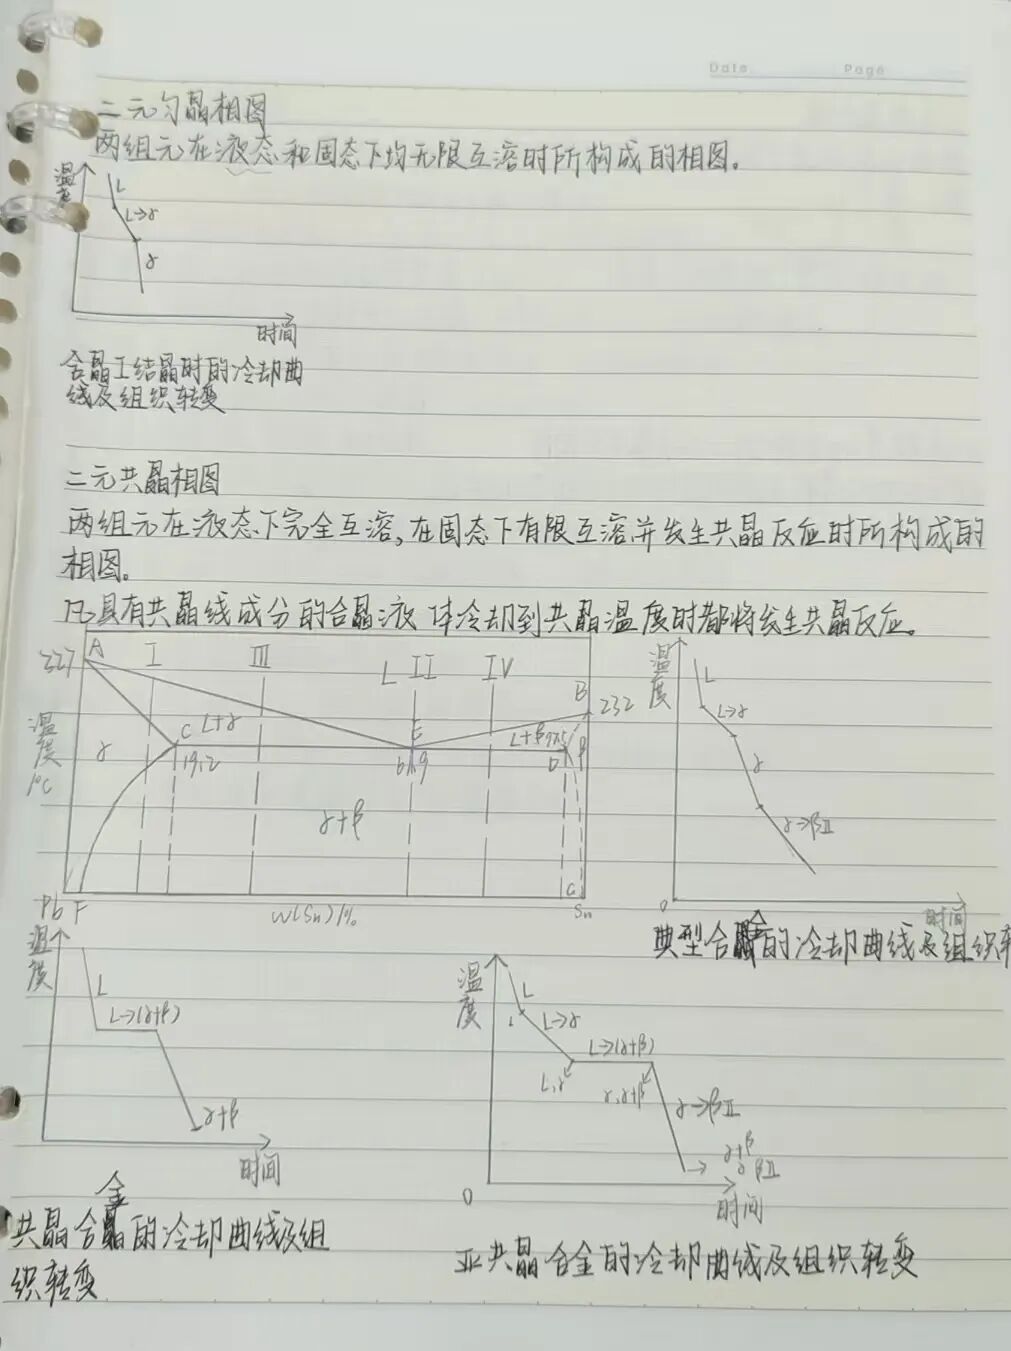 Date    Page
二元匀晶相图
两组元在液态和固态下均无限互溶时所构成的相图。
温度
L
L→γ
γ
时间
合晶I结晶时的冷却曲
线及组织转变
二元共晶相图
两组元在液态下完全互溶,在固态下有限互溶并发生共晶反应时所构成的
相图。
凡具有共晶线成分的合晶液体冷却到共晶温度时都将发生共晶反应。
327 A I III L II IV B 232
温度/℃
γ C L+γ E L+β 97.5 β
19.2 61.9 D
γ+β
Pb F W(Sn)/% G Sn
温度
L
L→γ
γ
γ→βII
0 时间
典型合金的冷却曲线及组织转
温度
L
L→(γ+β)
γ+β
时间
共晶合金的冷却曲线及组
织转变
温度
L
L→γ
L→(γ+β)
L,γ γ,γ+β
γ→βII
γ+β
γ βII
0 时间
亚共晶合金的冷却曲线及组织转变